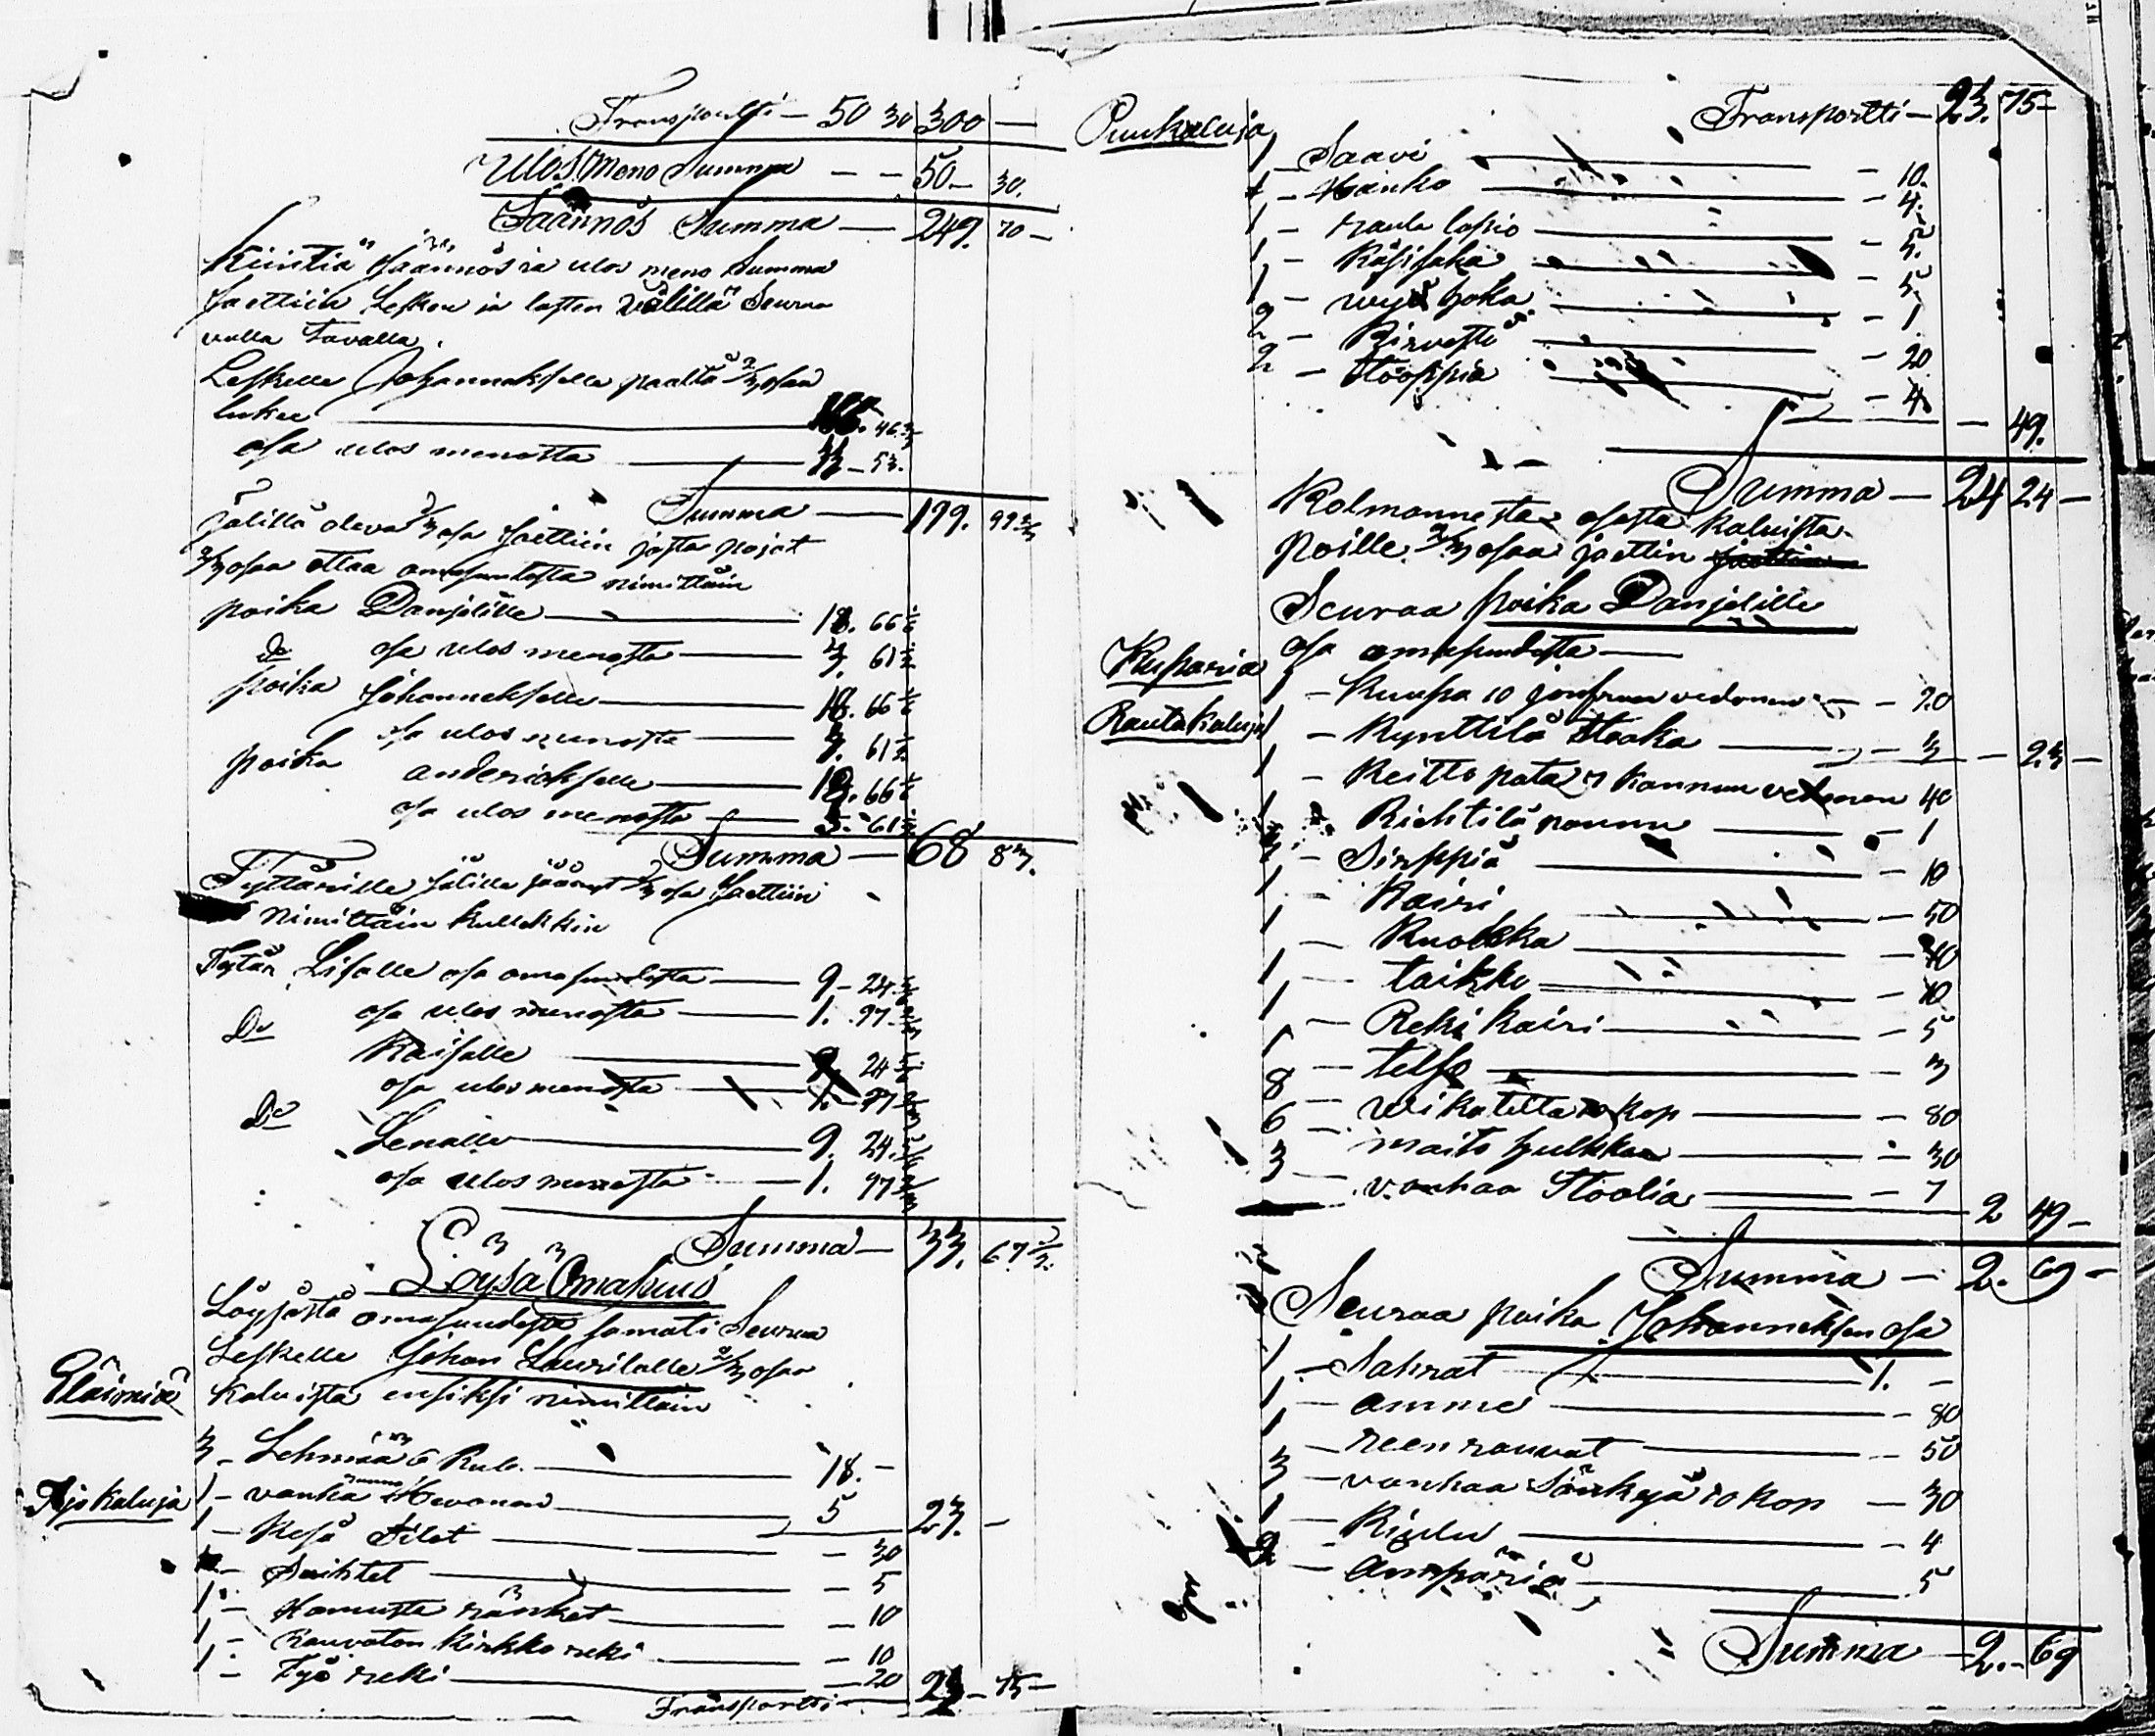 Transportti — 50 30 300 —
Ulos Meno Summa — — 50 — 30.
Säännös Summa — 249. 70 —
Kiintiä säännös ia ulos meno Summa
Jaettiin Lesken ia lasten välillä Seuraa
valla Tavalla.
Leskelle Johannekselle paaltä 2/3 osaa
lukee — 46 2/3
osa ulos menosta — 33 — 53.
Summa — 199. 99 2/3
jälillä oleva 1/3 osa Jaettiin josta pojat
2/3 osaa ottaa omasuudesta nimittäin
poika Danjelille — 18. 66 1/6
do osa ulos menosta — 3. 61 1/2
poika Johannekselle — 18. 66 1/6
osa ulos menosta — 3. 61 1/2
poika anderickselle — 18. 66 1/6
osa ulos menosta — 3. 61 1/2
Summa — 68 83.
Tyttärille jälille jäänyt 1/3 osa Jaettiin
Nimittäin kullekkin
Tytär Lisalle osa omasuudesta — 9 — 24
osa ulos menosta — 1. 97
Do Kaisalle — 9 24
osa ulos menosta — 1. 97
Do Lenalle — 9. 24
osa ulos menosta — 1. 97
Summa — 33. 67 1/2.
Löysä Omasuus
Löysästä omasuudesta samati Seuraa
Leskelle Johan Laurilalle 2/3 osaa
Eläimiä Kaluista ensiksi nimittäin
3 — Lehmää 6 Rub. — 18. —
1 — vanha ruuna Hevonen — 5 23. —
Ajo kaluja 1 — Kesä Tilet — 30
Suihtet — 5
1 — Hamusta ränket — 10
1 — Rauvaton kirkko reki — 10
1 — Työ reki — 20
Transportti — 23 — 75 —
Transportti — 23. 75 —
Puukaluja 1 — Saavi — 10.
1 — Hanko — 4.
1 — rauta lapio — 5.
1 — Käsisaha — 5
1 — wyö hoka — 1
2 — Kirvestä — 20
2 — Stooppia — 4
— 49.
Summa — 24 24 —
Kolmannesta osasta kaluista
poille 2/3 osaa jaettin jaettiin
Seuraa poika Danjelille
osa omasuudesta —
Kuparia 1 — Kuupa 10 jonfruun vedonen — 20
Rautakaluja 1 — Kynttilä Stoaka — 3 — 23 —
1 — Keitto pata 7 kannun vetonen 40
1 — Richtilä pannu — 1
Sirppiä — 10
1 — Kairi — 50
1 — Kuokka — 10
1 — taikko — 10
1 — Reki kairi — 5
1 — telso — 3
8 — wikatetta 10 kop — 80
6 — maito hulkkaa — 30
3 — vanhaa Stoolia — 7
2 49 —
Summa — 2. 69 —
Seuraa poika Johanneksen osa
1 — Sahrat — 1. —
1 — amme — 80
1 — reen rauvat — 50
3 — vanhaa Sänkyä 10 kop — 30
1 — Kiulu — 4
2 — ämpäriä — 5
Summa — 2. — 69